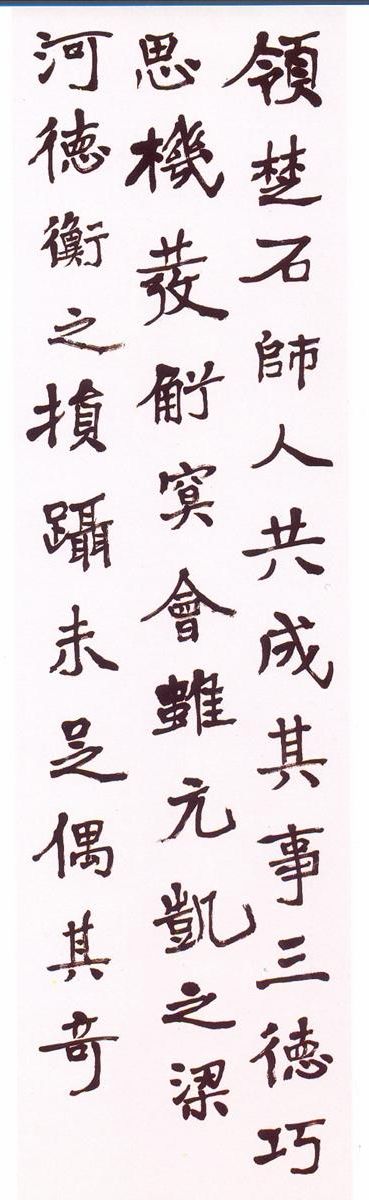 領楚石師人共成其事三德巧
思機發觧寞會雖元凱之梁
河德衡之損躡未足偶其奇